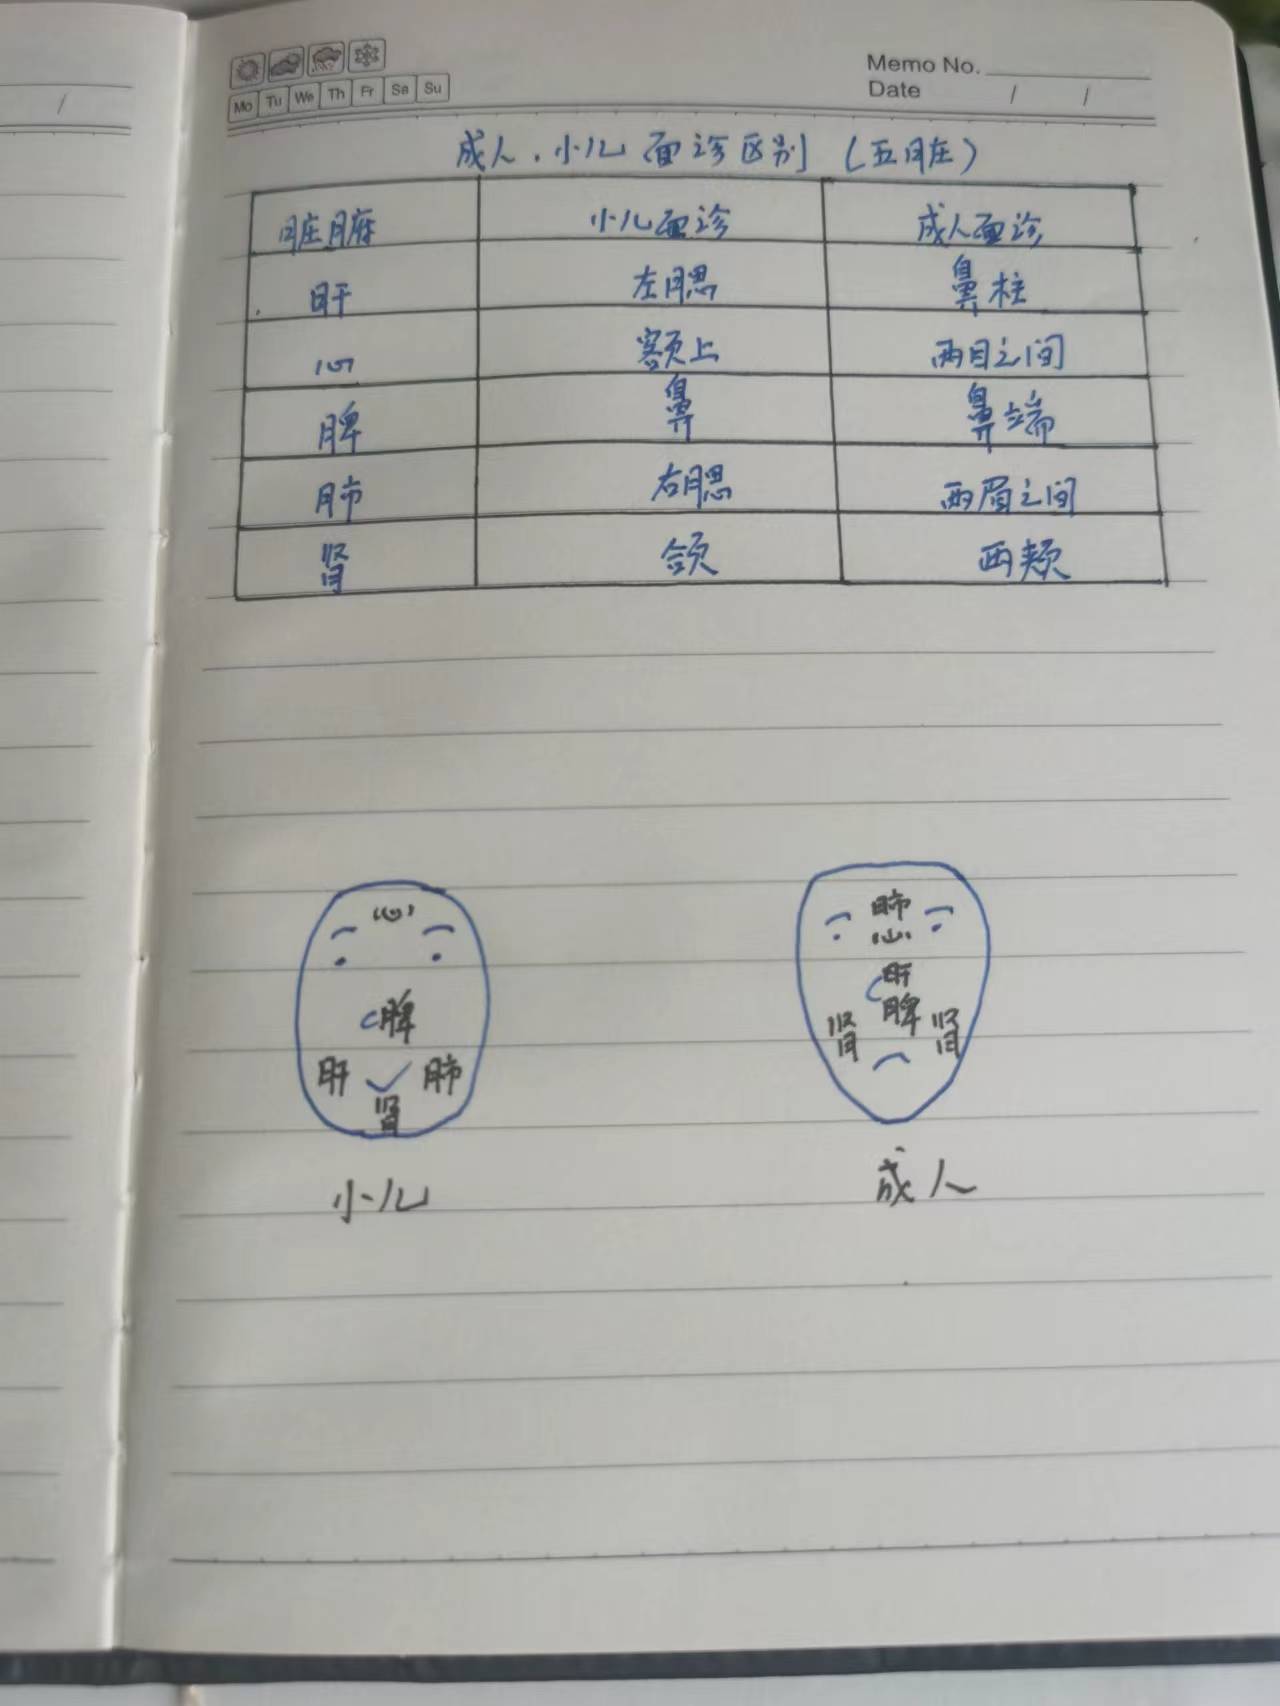 Mo Tu We Th Fr Sa Su
Memo No.
Date / /
/
成人、小儿面诊区别（五脏）
脏腑 小儿面诊 成人面诊
肝 左腮 鼻柱
心 额上 两目之间
脾 鼻 鼻端
肺 右腮 两眉之间
肾 颌 两颊
心
脾
肝 肺
肾
小儿
肺
心
肝
脾
肾 肾
成人